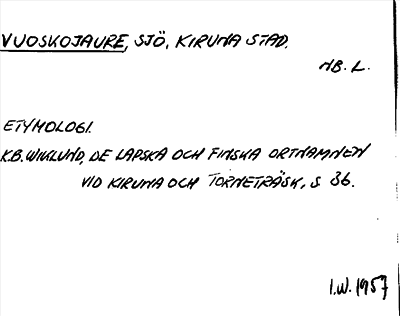 VUOSKOJAURE, SJÖ, KIRUNA STAD.
NB. L.
ETYMOLOGI.
K.B. WIKLUND, DE LAPSKA OCH FINSKA ORTNAMNEN
VID KIRUNA OCH TORNETRÄSK, S 36.
I.W. 1957